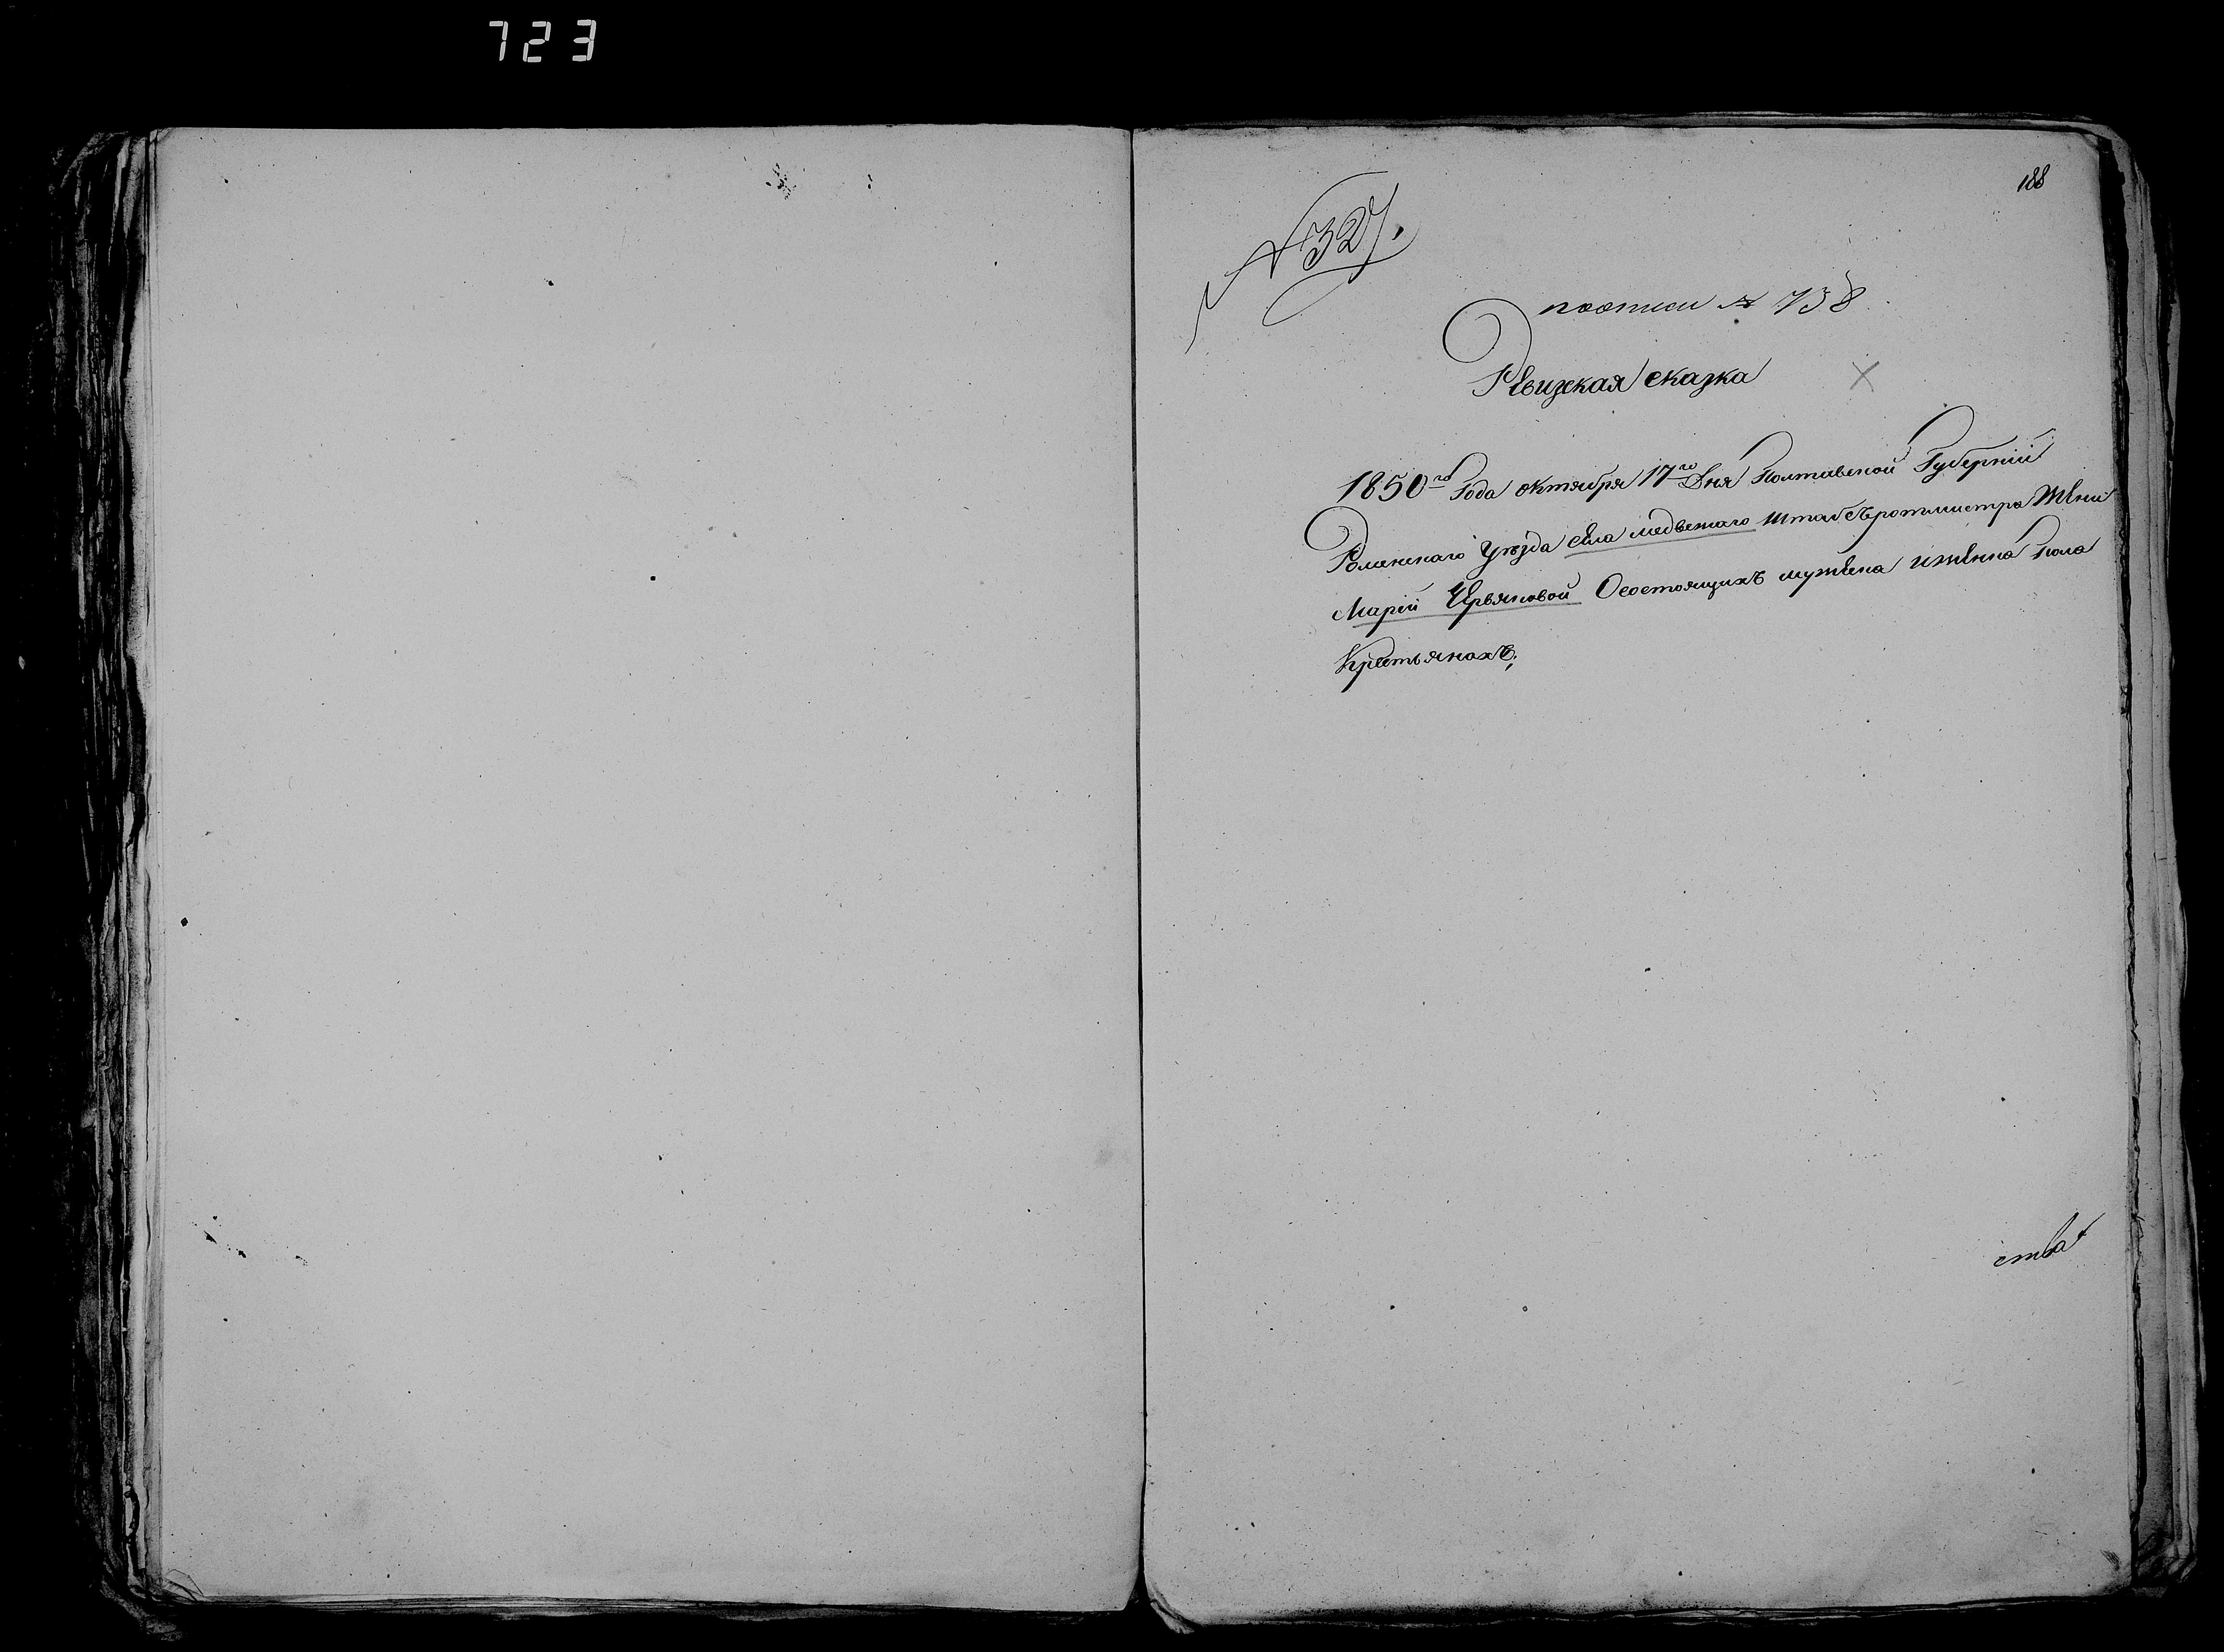 723
188
№ 327.
поописи № 738
Ревизкая сказка
1850го Года октября 17го Дня Полтавской Губерніи
Роменскаго Уѣзда села медвежаго штабсъротмистра Жени
Маріи Червяковой Осостоящихъ мужеска иженска Пола
Крестьянахъ;